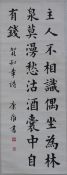 主人不相識偶坐為林
泉莫謾愁沽酒囊中自
有錢
賀知章詩 康雍書